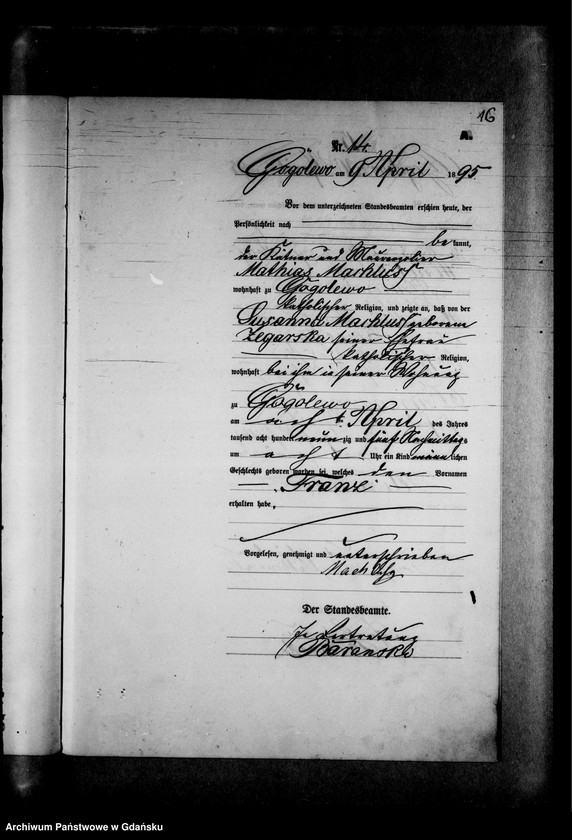 16
A.
Nr. 14.
Gogolewo am 9 April 1895
Vor dem unterzeichneten Standesbeamten erschien heute, der
Persönlichkeit nach
bekannt,
der Kätner und Maurerpolier
Mathias Markluss
wohnhaft zu Gogolewo
katholischer Religion, und zeigte an, daß von der
Susanna Markluss geborenen
Zegarska seiner Ehefrau
katholischer Religion,
wohnhaft bei ihm in seiner Wohnung
zu Gogolewo
am acht April des Jahres
tausend acht hundert neunzig und fünf Nachmittags
um acht Uhr ein Kind männlichen
Geschlechts geboren worden sei, welches den Vornamen
Franz
erhalten habe.
Vorgelesen, genehmigt und unterschrieben
Der Standesbeamte.
In Vertretung
Baranski
Archiwum Państwowe w Gdańsku